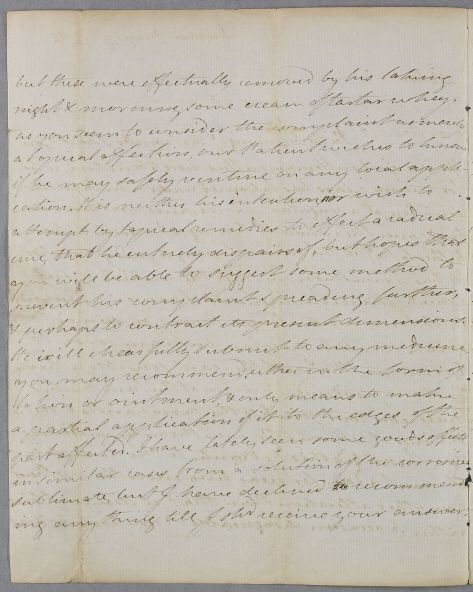 but these were effectually removed by his taking
night & morning, some cream of tartar whey.
as you seem to consider the complaint as merely
a topical affection, our Patient wishes to know
if he may safely venture on any local appli-
cation. It is neither his intention nor wish to
attempt by topical remedies to effect a radical
cure, that he entirely despairs of, but hopes that
you will be able to suggest some method to
prevent his complaint spreading further,
& perhaps to contract its present dimensions.
He will chearfully submit to any medicine
you may recommend, either in the form of
lotion or ointment & only means to make
a partial application of it to the edges of the
part affected. I have lately seen some good effects
in similar cases from a solution of the corrosive
sublimate, but I have declined to recommend
ing any thing till I shd. receive your answer.